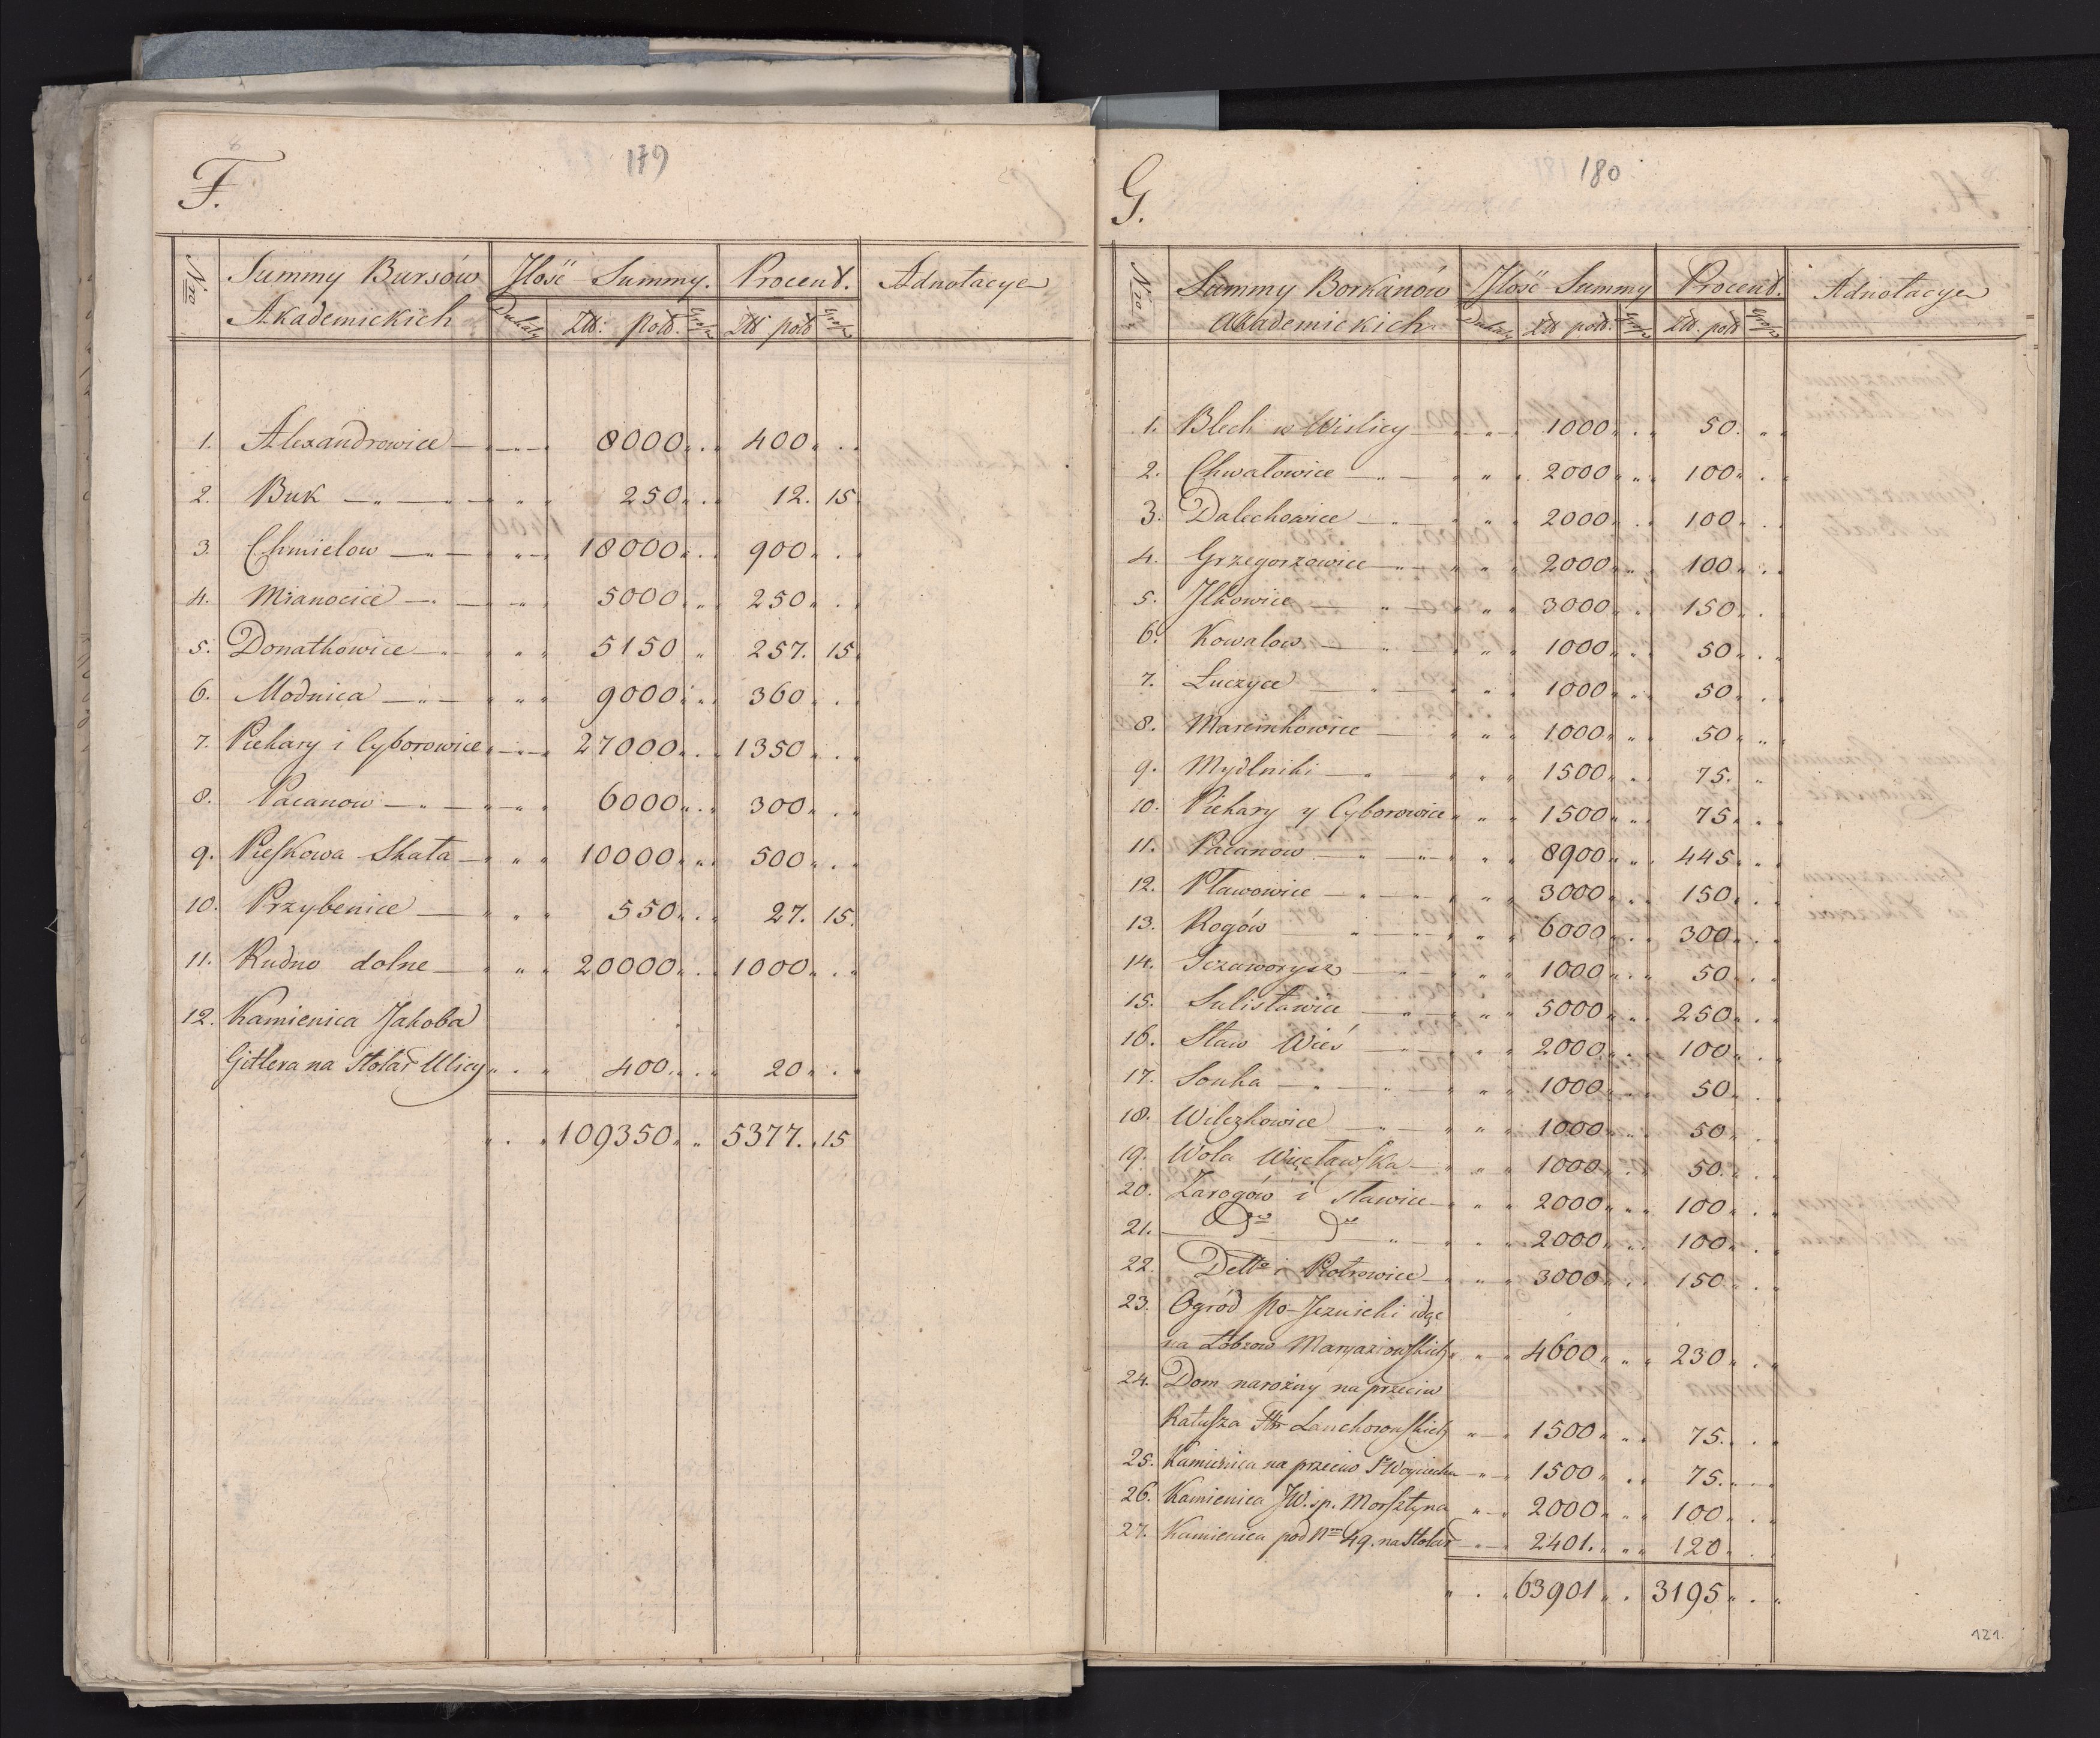 8
F.
179
Nro Summy Bursów Jlość Summy. Procent. Adnotacye
Akademickich Dukaty Złł: Pols: Grosze Złł pols Grosze
1. Alexandrowice 8000 400
2. Buk 250 12. 15
3. Chmielow 18000 900
4. Mianocice 5000 250
5. Donatkowice 5150 257. 15
6. Modnica 9000 360
7. Piekary i Cyborowice 27000 1350
8. Pacanow 6000 300
9. Pieskowa Skała 10000 500
10. Przybenice 550 27. 15.
11. Rudno dolne 20000 1000
12. Kamienica Jakoba
Gitlera na Stolar Ulicy 400 20
109350 5377. 15
G.
180
Nro Summy Borkanów Jlość Summy Procent. Adnotacye
Akademickich Dukaty Złł pols. Grosze Złł. pols Grosze
1. Blech w Wislicy 1000 50.
2. Chwałowice 2000 100
3. Dalechowice 2000 100
4. Grzegorzowice 2000 100
5. Jlkowice 3000 150
6. Kowalow 1000 50
7. Łuczyce 1000 50
8. Marcinkowice 1000 50
9. Mydlniki 1500 75.
10. Piekary y Cyborowice 1500 75
11. Pacanow 8900 445
12. Pławowice 3000 150
13. Rogów 6000 300
14. Sczaworysz 1000 50
15. Sulisławice 5000 250
16. Staw Wieś 2000 100
17. Sonka 1000 50
18. Wilczkowice 1000 50
19. Wola Więcławska 1000 50
20. Zarogów i Sławice 2000 100
21. Do Do 2000 100
22. Dette i Piotrowice 3000 150
23. Ogród Po-Jezuicki idąc
na Łobzow Maryaziowskich 4600 230
24. Dom narożny na przeciw
Ratusza Lanchorowskich 1500 75.
25. Kamienica na przeciw S Woyciecha 1500 75.
26. Kamienica JW. sp. Morsztyna 2000 100
27. Kamienica pod Nrm 49. na Stolar 2401. 120
63901 3195
121.